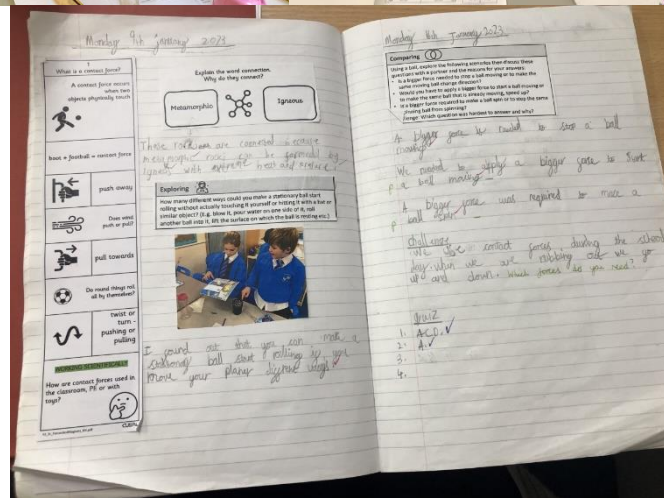 Monday 9th january 2023
1
What is a contact force?
A contact force occurs
when two
objects physically touch
boot + football = contact force
push away
Does wind
push or pull?
pull towards
Do round things roll
all by themselves?
twist or
turn -
pushing or
pulling
WORKING SCIENTIFICALLY
How are contact forces used in
the classroom, PE or with
toys?
Explain the word connection.
Why do they connect?
Metamorphic
Igneous
These are connected because
metamorphic rock can be formed by
Igneous with extreme heat and
Exploring
How many different ways could you make a stationary ball start
rolling without actually touching it yourself or hitting it with a bat or
similar object? (E.g. blow it, pour water on one side of it, roll
another ball into it, lift the surface on which the ball is resting etc.)
I found out that you can make a
stationary ball start rolling if you
move your
Monday January 2023
Comparing
Using a ball, explore the following scenarios then discuss these
questions with a partner and the reasons for your answers:
• Is a bigger force needed to stop a ball moving or to make the
same moving ball change direction?
• Would you have to apply a bigger force to start a ball moving or
to make the same ball that is already moving, speed up?
• Is a bigger force required to make a ball spin or to stop the same
moving ball from spinning?
Which question was hardest to answer and why?
A bigger force is needed to stop a ball
moving
We needed to apply a bigger force to start
a ball moving
A bigger force was required to make a
ball
Challenge
We use contact forces during the school
day when we are rubbing out we go
up and down. Which forces do you need?
Quiz
1. A.C.D.
2. A.
3.
4.